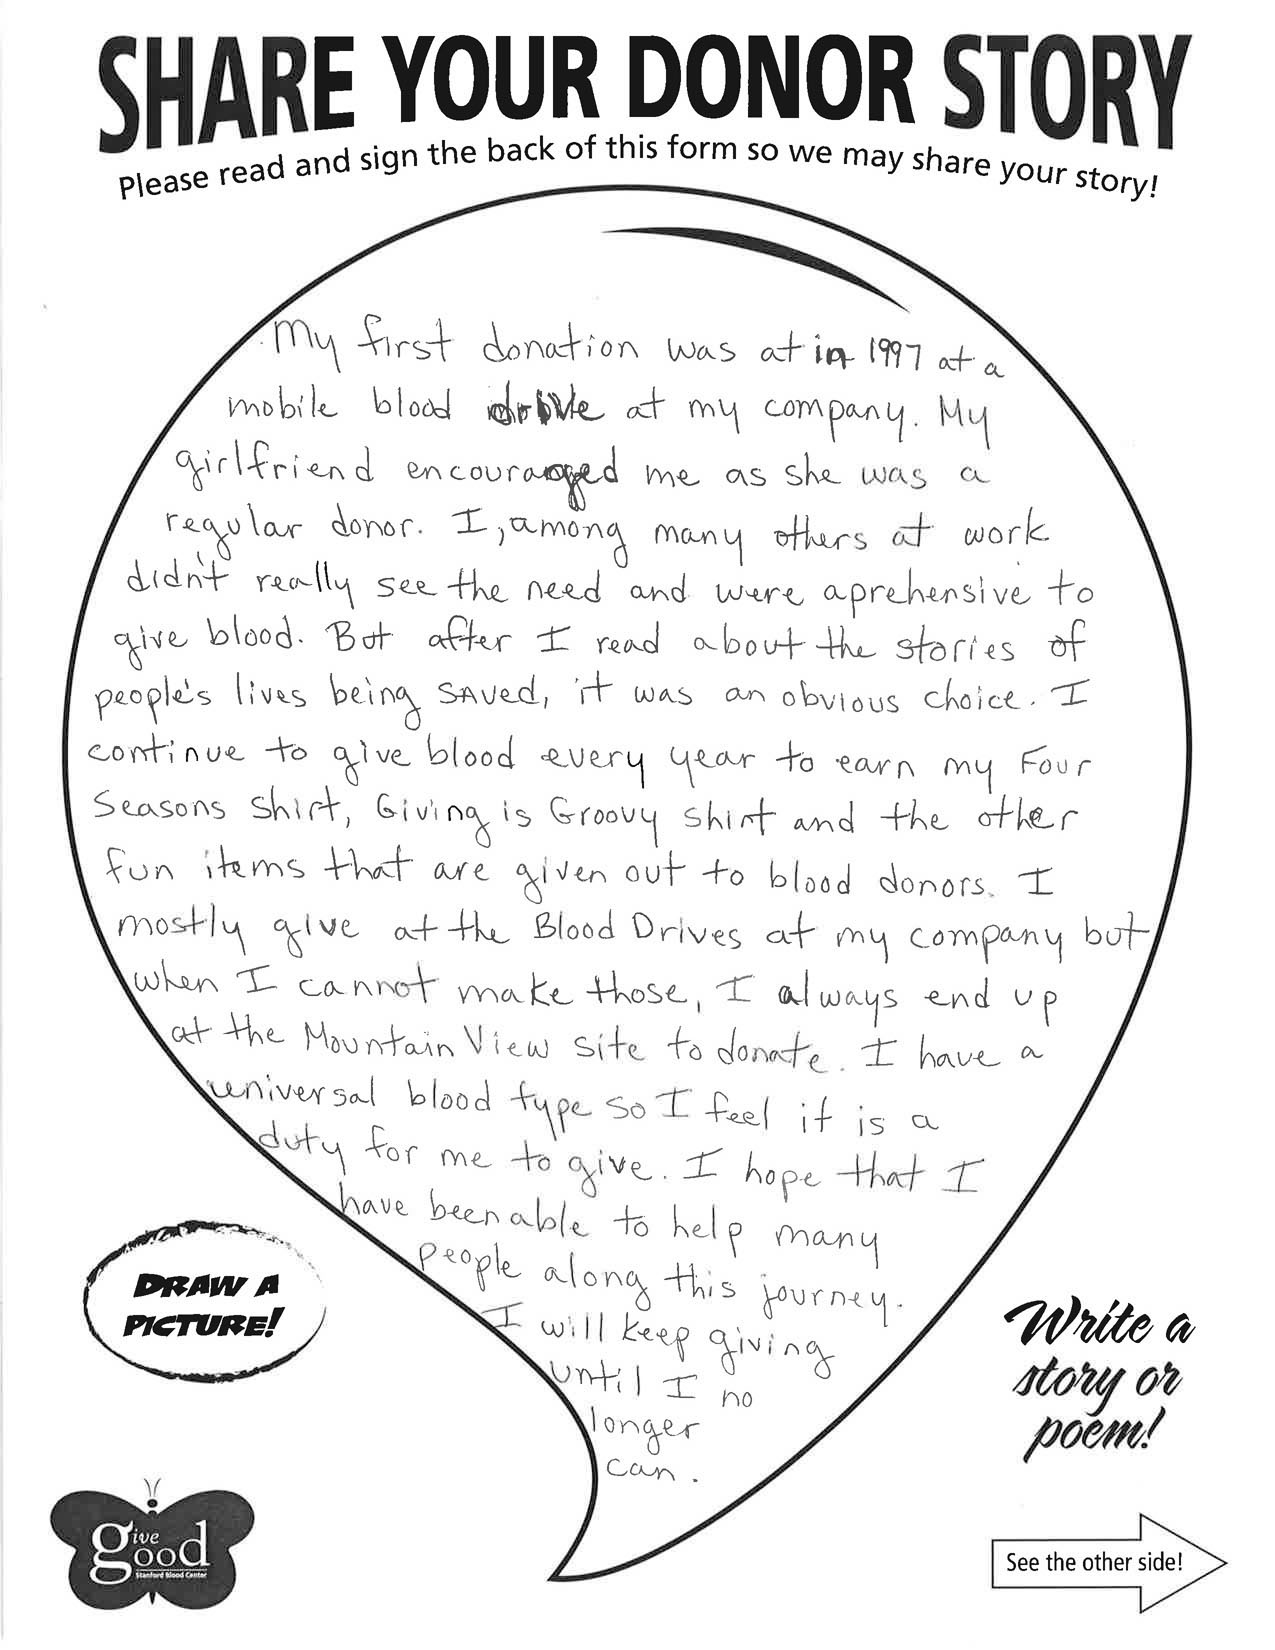 SHARE YOUR DONOR STORY
Please read and sign the back of this form so we may share your story!
My first donation was at in 1997 at a
mobile blood drive at my company. My
girlfriend encouraged me as she was a
regular donor. I, among many others at work
didn't really see the need and were aprehensive to
give blood. But after I read about the stories of
people's lives being SAved, it was an obvious choice. I
continue to give blood every year to earn my Four
Seasons Shirt, Giving is Groovy Shirt and the other
fun items that are given out to blood donors. I
mostly give at the Blood Drives at my company but
when I cannot make those, I always end up
at the Mountain View site to donate. I have a
universal blood type so I feel it is a
duty for me to give. I hope that I
have been able to help many
people along this journey.
I will keep giving
until I no
longer
can.
DRAW A
PICTURE!
Write a
story or
poem!
give
good
Stanford Blood Center
See the other side!